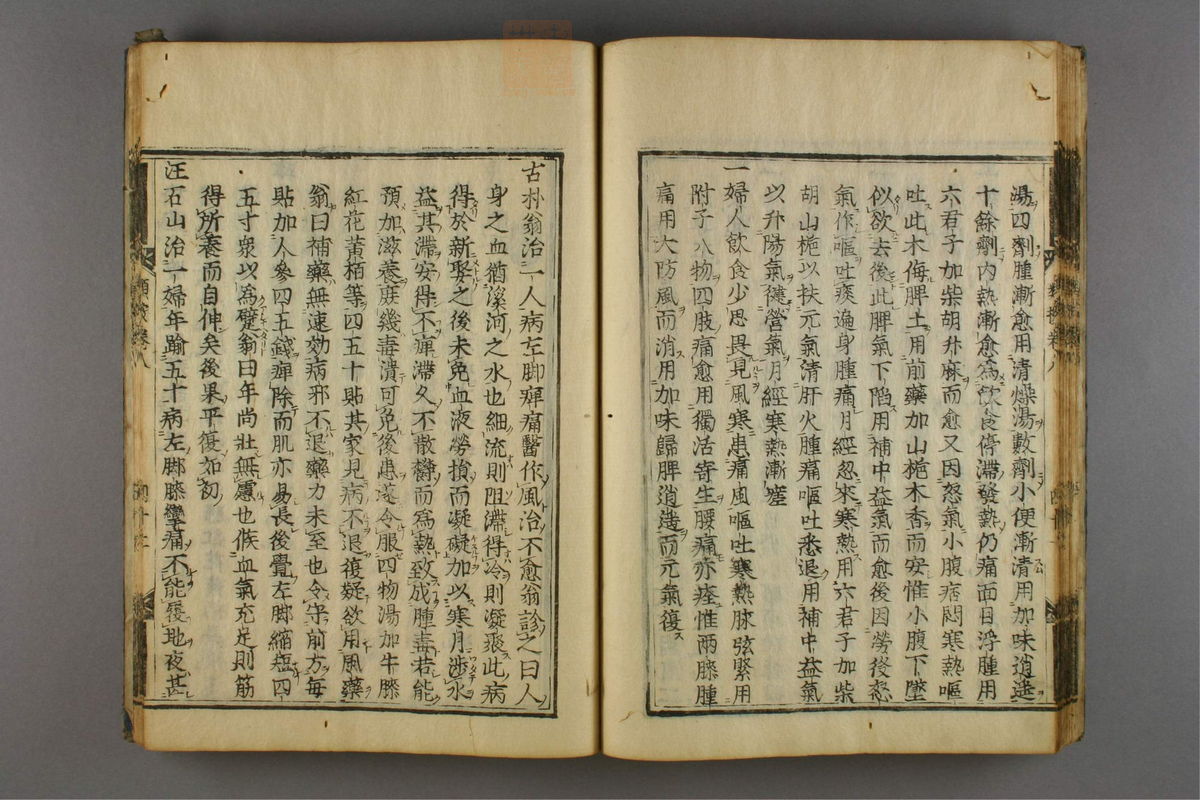 湯四劑腫漸愈用清燥湯數劑小便漸清用加味逍遙
十餘劑內熱漸愈為飲食停滯發熱仍痛面目浮腫用
六君子加柴胡升麻而愈又因怒氣小腹痞悶寒熱嘔
吐此木侮脾土用前藥加山梔木香而安惟小腹下墜
似欲去後此脾氣下陷用補中益氣而愈後因勞發怒
氣作嘔吐痰遍身腫痛月經忽來寒熱用六君子加柴
胡山梔以扶元氣清肝火腫痛嘔吐悉退用補中益氣
以升陽氣健營氣月經寒熱漸瘥
一婦人飲食少思畏見風寒患痛風嘔吐寒熱脉弦緊用
附子八物四肢痛愈用獨活寄生腰痛亦痊惟兩膝腫
痛用大防風而消用加味歸脾逍遙而元氣復
古朴翁治一人病左脚痺痛醫作風治不愈翁診之曰人
身之血猶溪河之水也細流則阻滯得冷則凝聚此病
得於新娶之後未免血液勞損而凝礙加以寒月涉水
益其滯安得不痺滯久不散鬱而為熱致成腫毒若能
預加滋養庶幾毒潰可免後患遂令服四物湯加牛膝
紅花黃栢等四五十貼其家見病不退復疑欲用風藥
翁曰補藥無速効病邪不退藥力未至也令守前方每
貼加人參四五錢痺除而肌亦易長後覺左脚縮短四
五寸眾以為躄翁曰年尚壯無慮也候血氣充足則筋
得所養而自伸矣後果平復如初
汪石山治一婦年踰五十病左脚膝攣痛不能履地夜甚